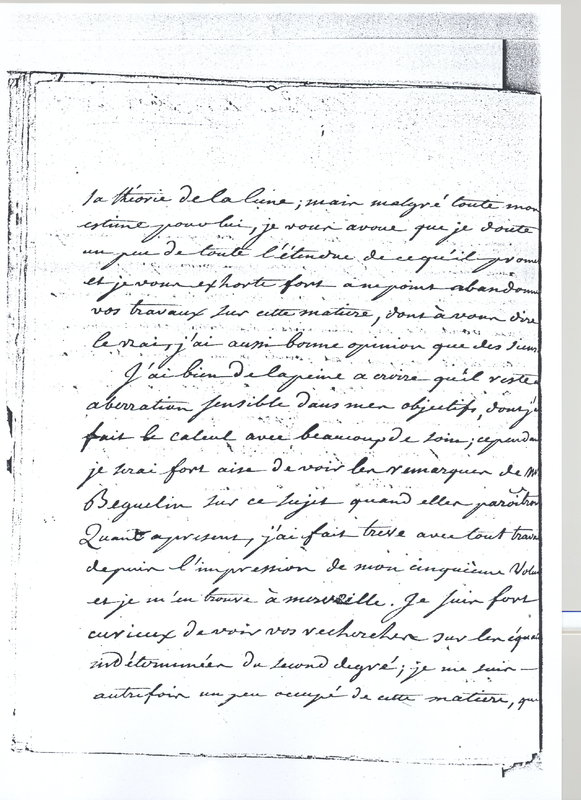 la théorie de la lune; mais malgré toute mon
estime pour lui, je vous avoue que je doute
un peu de toute l'étendue de ce qu'il prom
et je vous exhorte fort a ne point abandonn
vos travaux sur cette matiere, dont à vous dire
le vrai, j'ai aussi bonne opinion que des siens
J'ai bien de la peine a croire qu'il reste
aberration sensible dans mes objectifs, dont j'
fait le calcul avec beaucoup de soin; cependan
je serai fort aise de voir les remarques de Mr
Beguelin sur ce sujet quand elles paroitron
Quant apresent, j'ai fait treve avec tout trava
depuis l'impression de mon cinquieme Volu
et je m'en trouve à merveille. Je suis fort
curieux de voir vos recherches sur les équa
indéterminées du second degré; je me suis
autrefois un peu occupé de cette matiere, qu